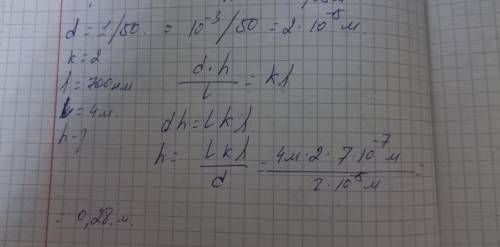 d = 1/50. = 10⁻³/50 = 2·10⁻⁵ м.
k = 2.
l = 700 нм.
d·h/L = kl
L = 4 м.
dh = Lkl
h - ?
h = Lkl/d = 4м·2·7·10⁻⁷м/2·10⁻⁵м =
= 0,28 м.